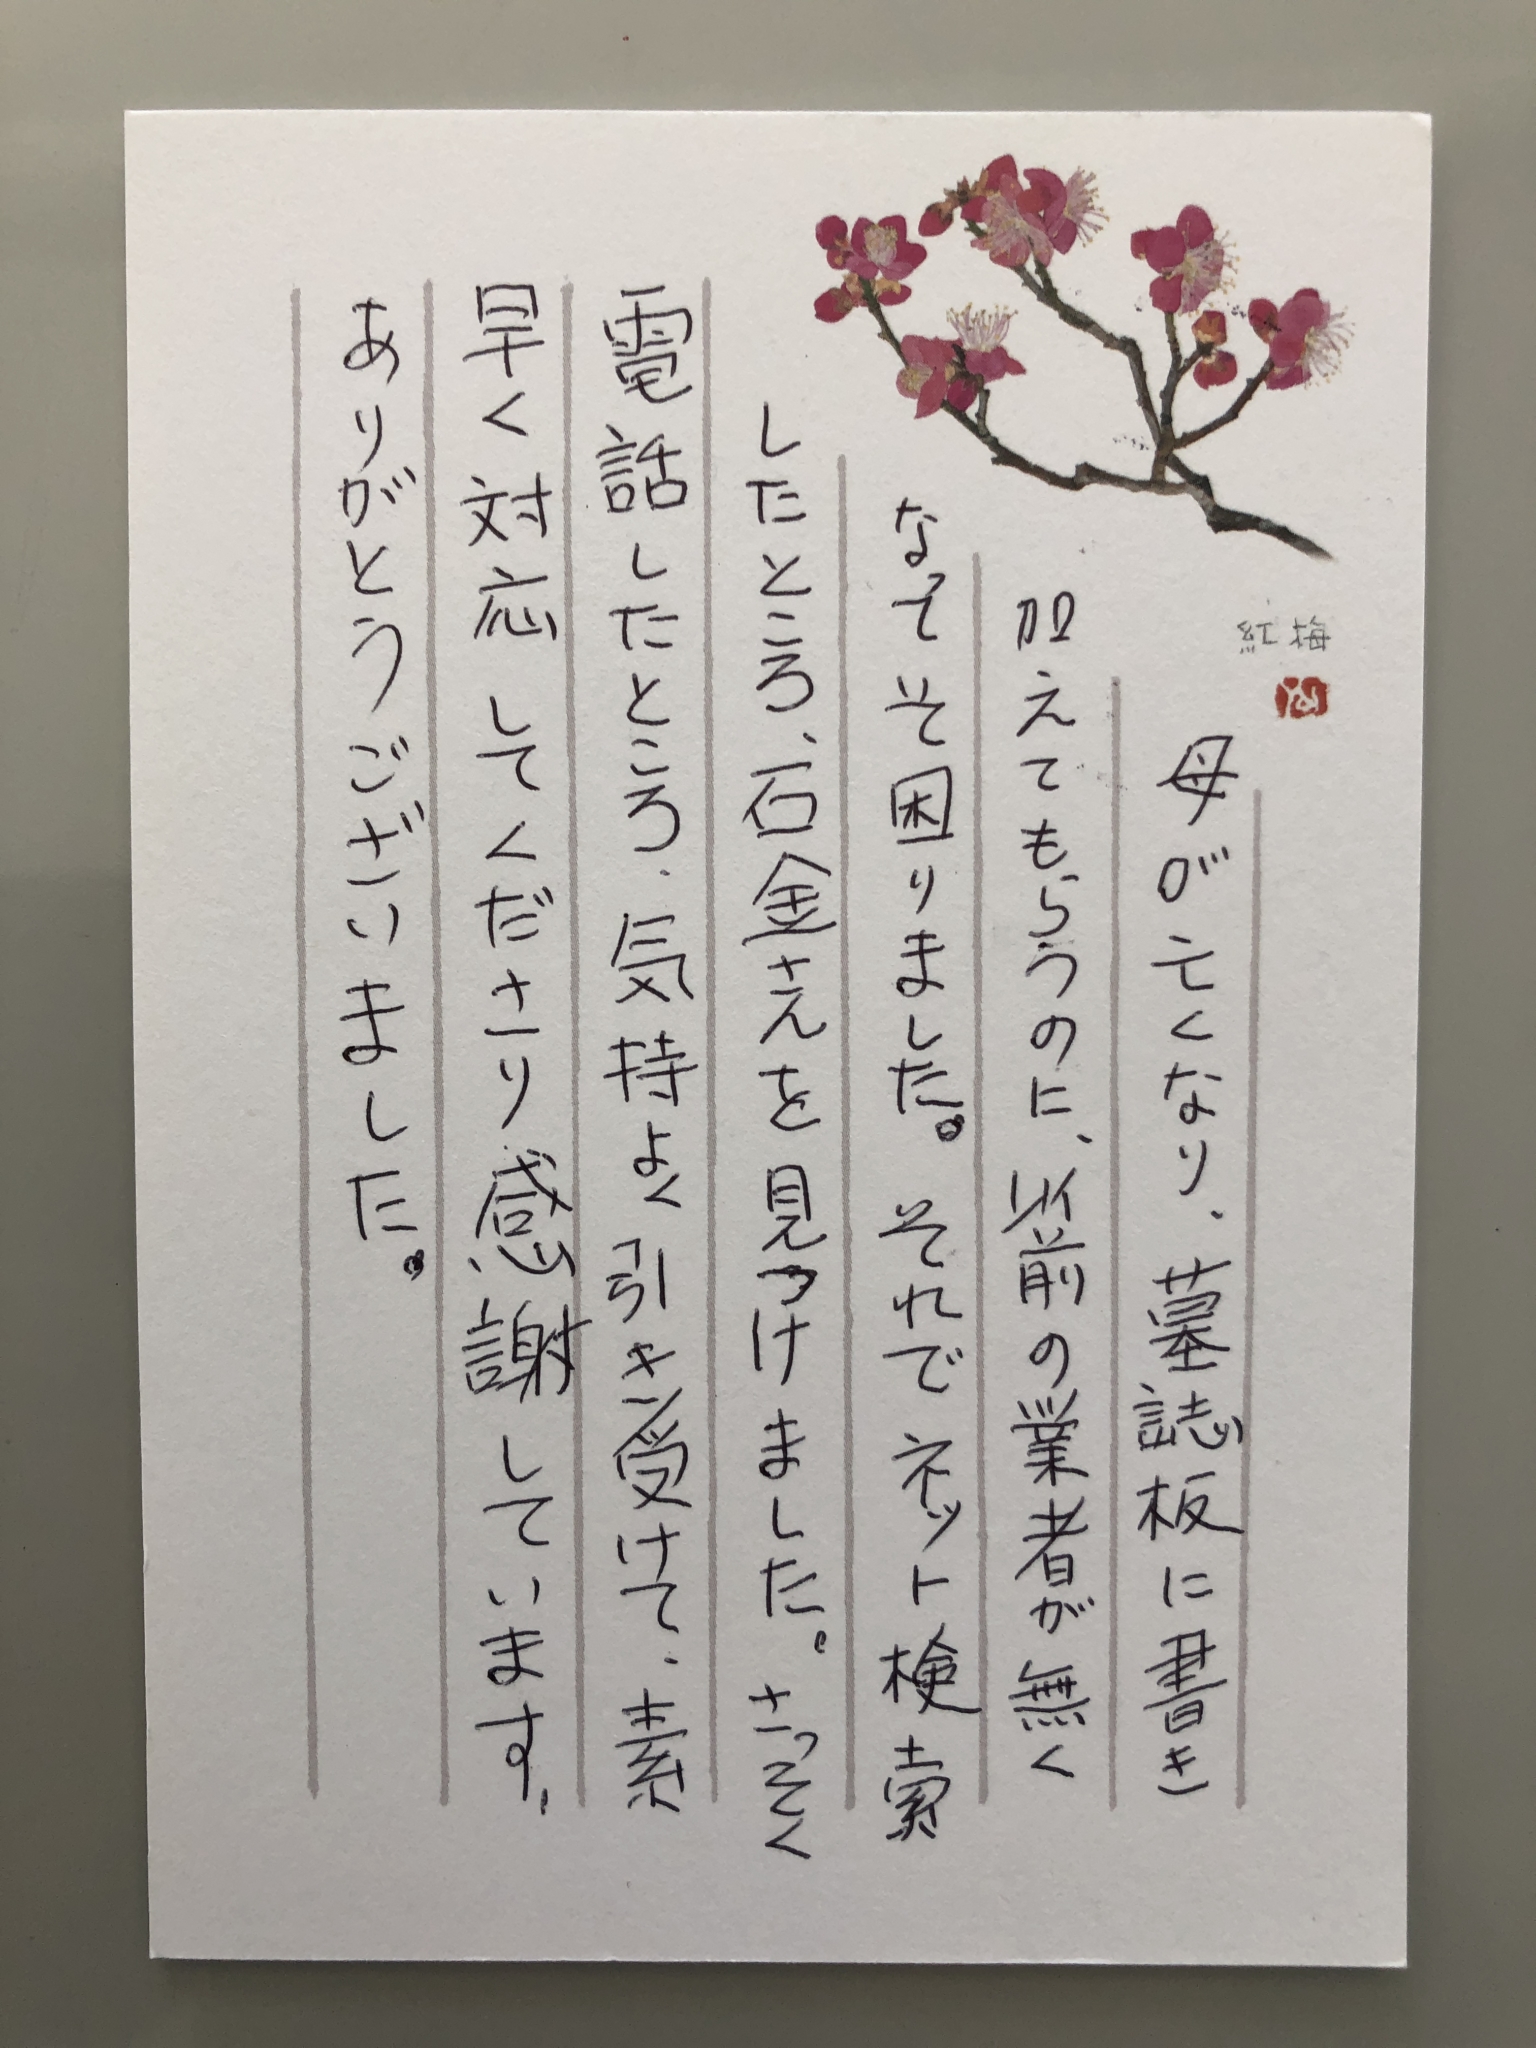 紅梅
母が亡くなり、墓誌板に書き
加えてもらうのに、以前の業者が無く
なってそ困りました。それでネット検索
したところ、石金さんを見つけました。さっそく
電話したところ、気持よく引き受けて、素
早く対応してくださり感謝しています。
ありがとうございました。